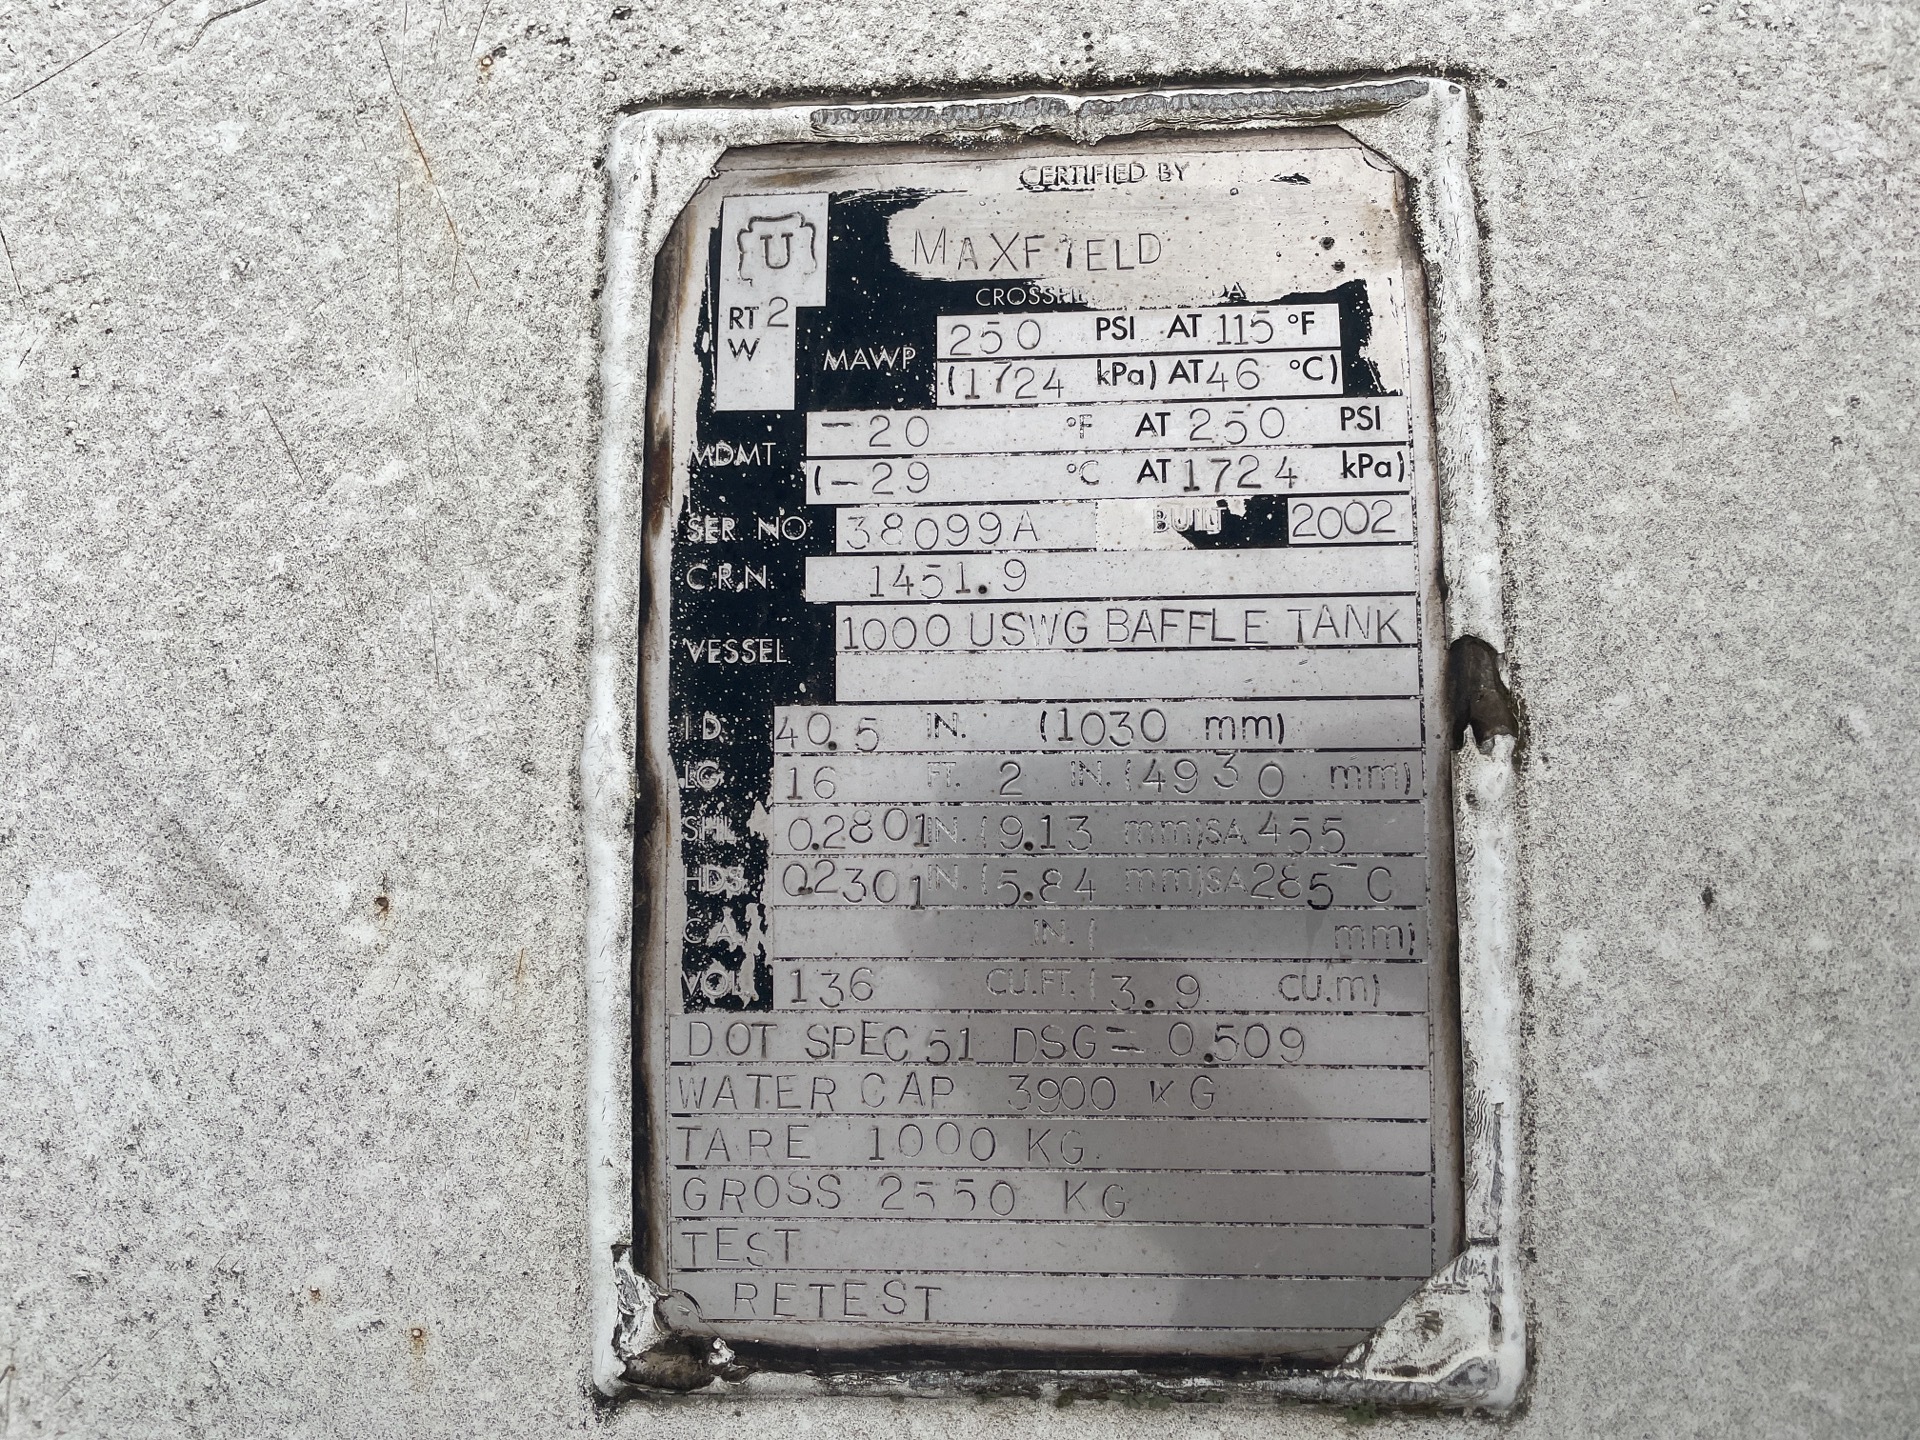 CERTIFIED BY
U
MAXFIELD
RT 2
W
MAWP
250 PSI AT 115 °F
(1724 kPa) AT 46 °C)
MDMT
-20 °F AT 250 PSI
(-29 °C AT 1724 kPa)
SER NO 38099A BUILT 2002
C.R.N. 1451.9
VESSEL
1000 USWG BAFFLE TANK
I D 40.5 IN. (1030 mm)
LG 16 FT. 2 IN. (4930 mm)
SHL 0.2801 IN. (9.13 mm) SA 455
HDS 0.2301 IN. (5.84 mm) SA 285 C
IN. ( mm)
VOL 136 CU.FT. (3.9 CU.m)
DOT SPEC 51 DSG = 0.509
WATER CAP 3900 KG
TARE 1000 KG
GROSS 2550 KG
TEST
RETEST